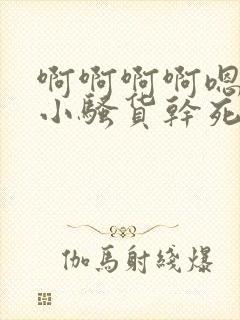 啊啊啊啊嗯
小骚货幹死
伽馬射綫爆